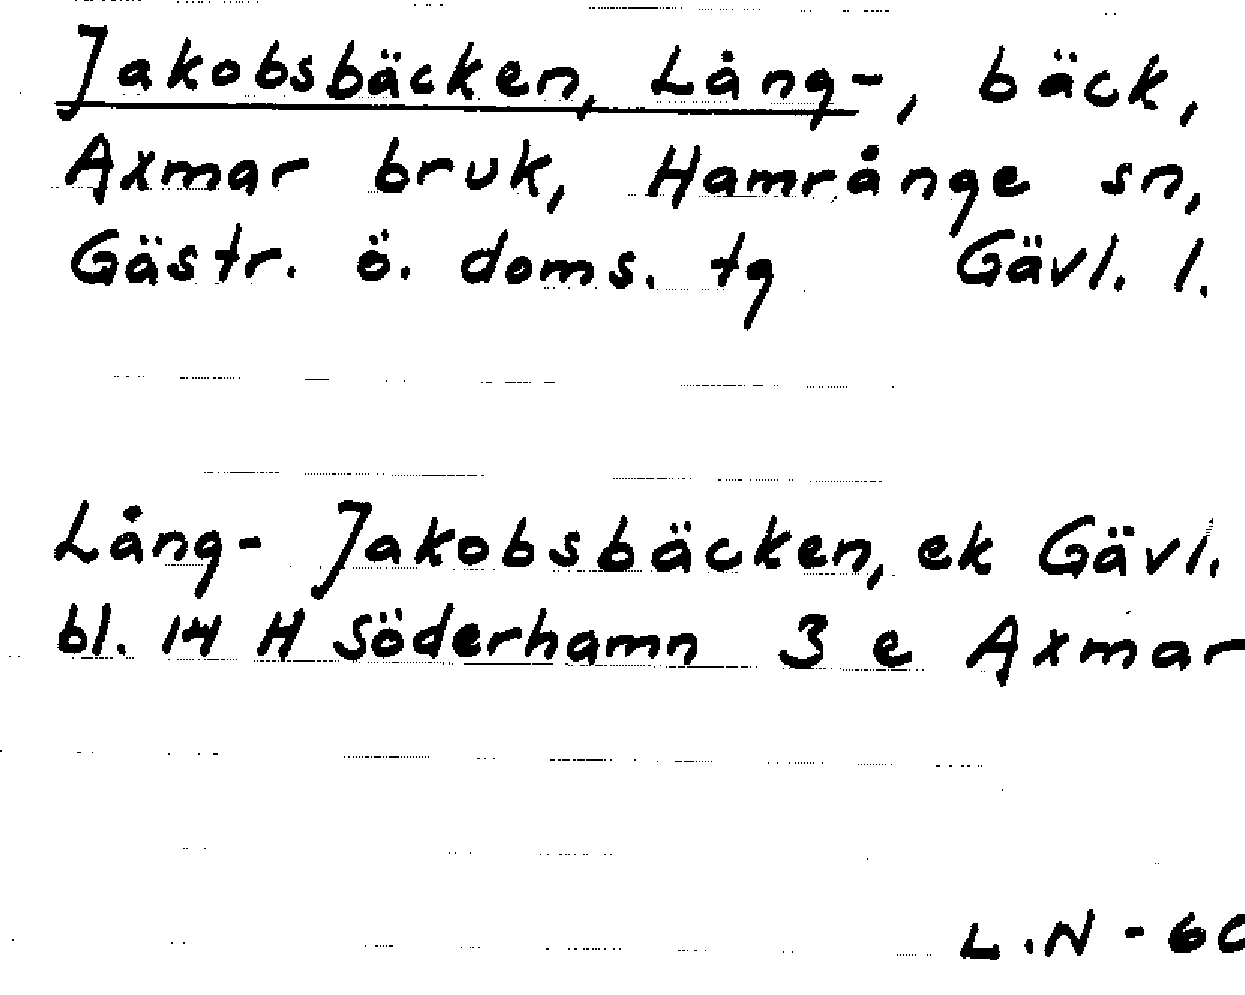 Jakobsbäcken, Lång-, bäck,
Axmar bruk, Hamrånge sn,
Gästr. ö. doms. tg Gävl. l.
Lång- Jakobsbäcken, ek Gävl.
bl. 14 H Söderhamn 3 e Axmar
L.N - 60